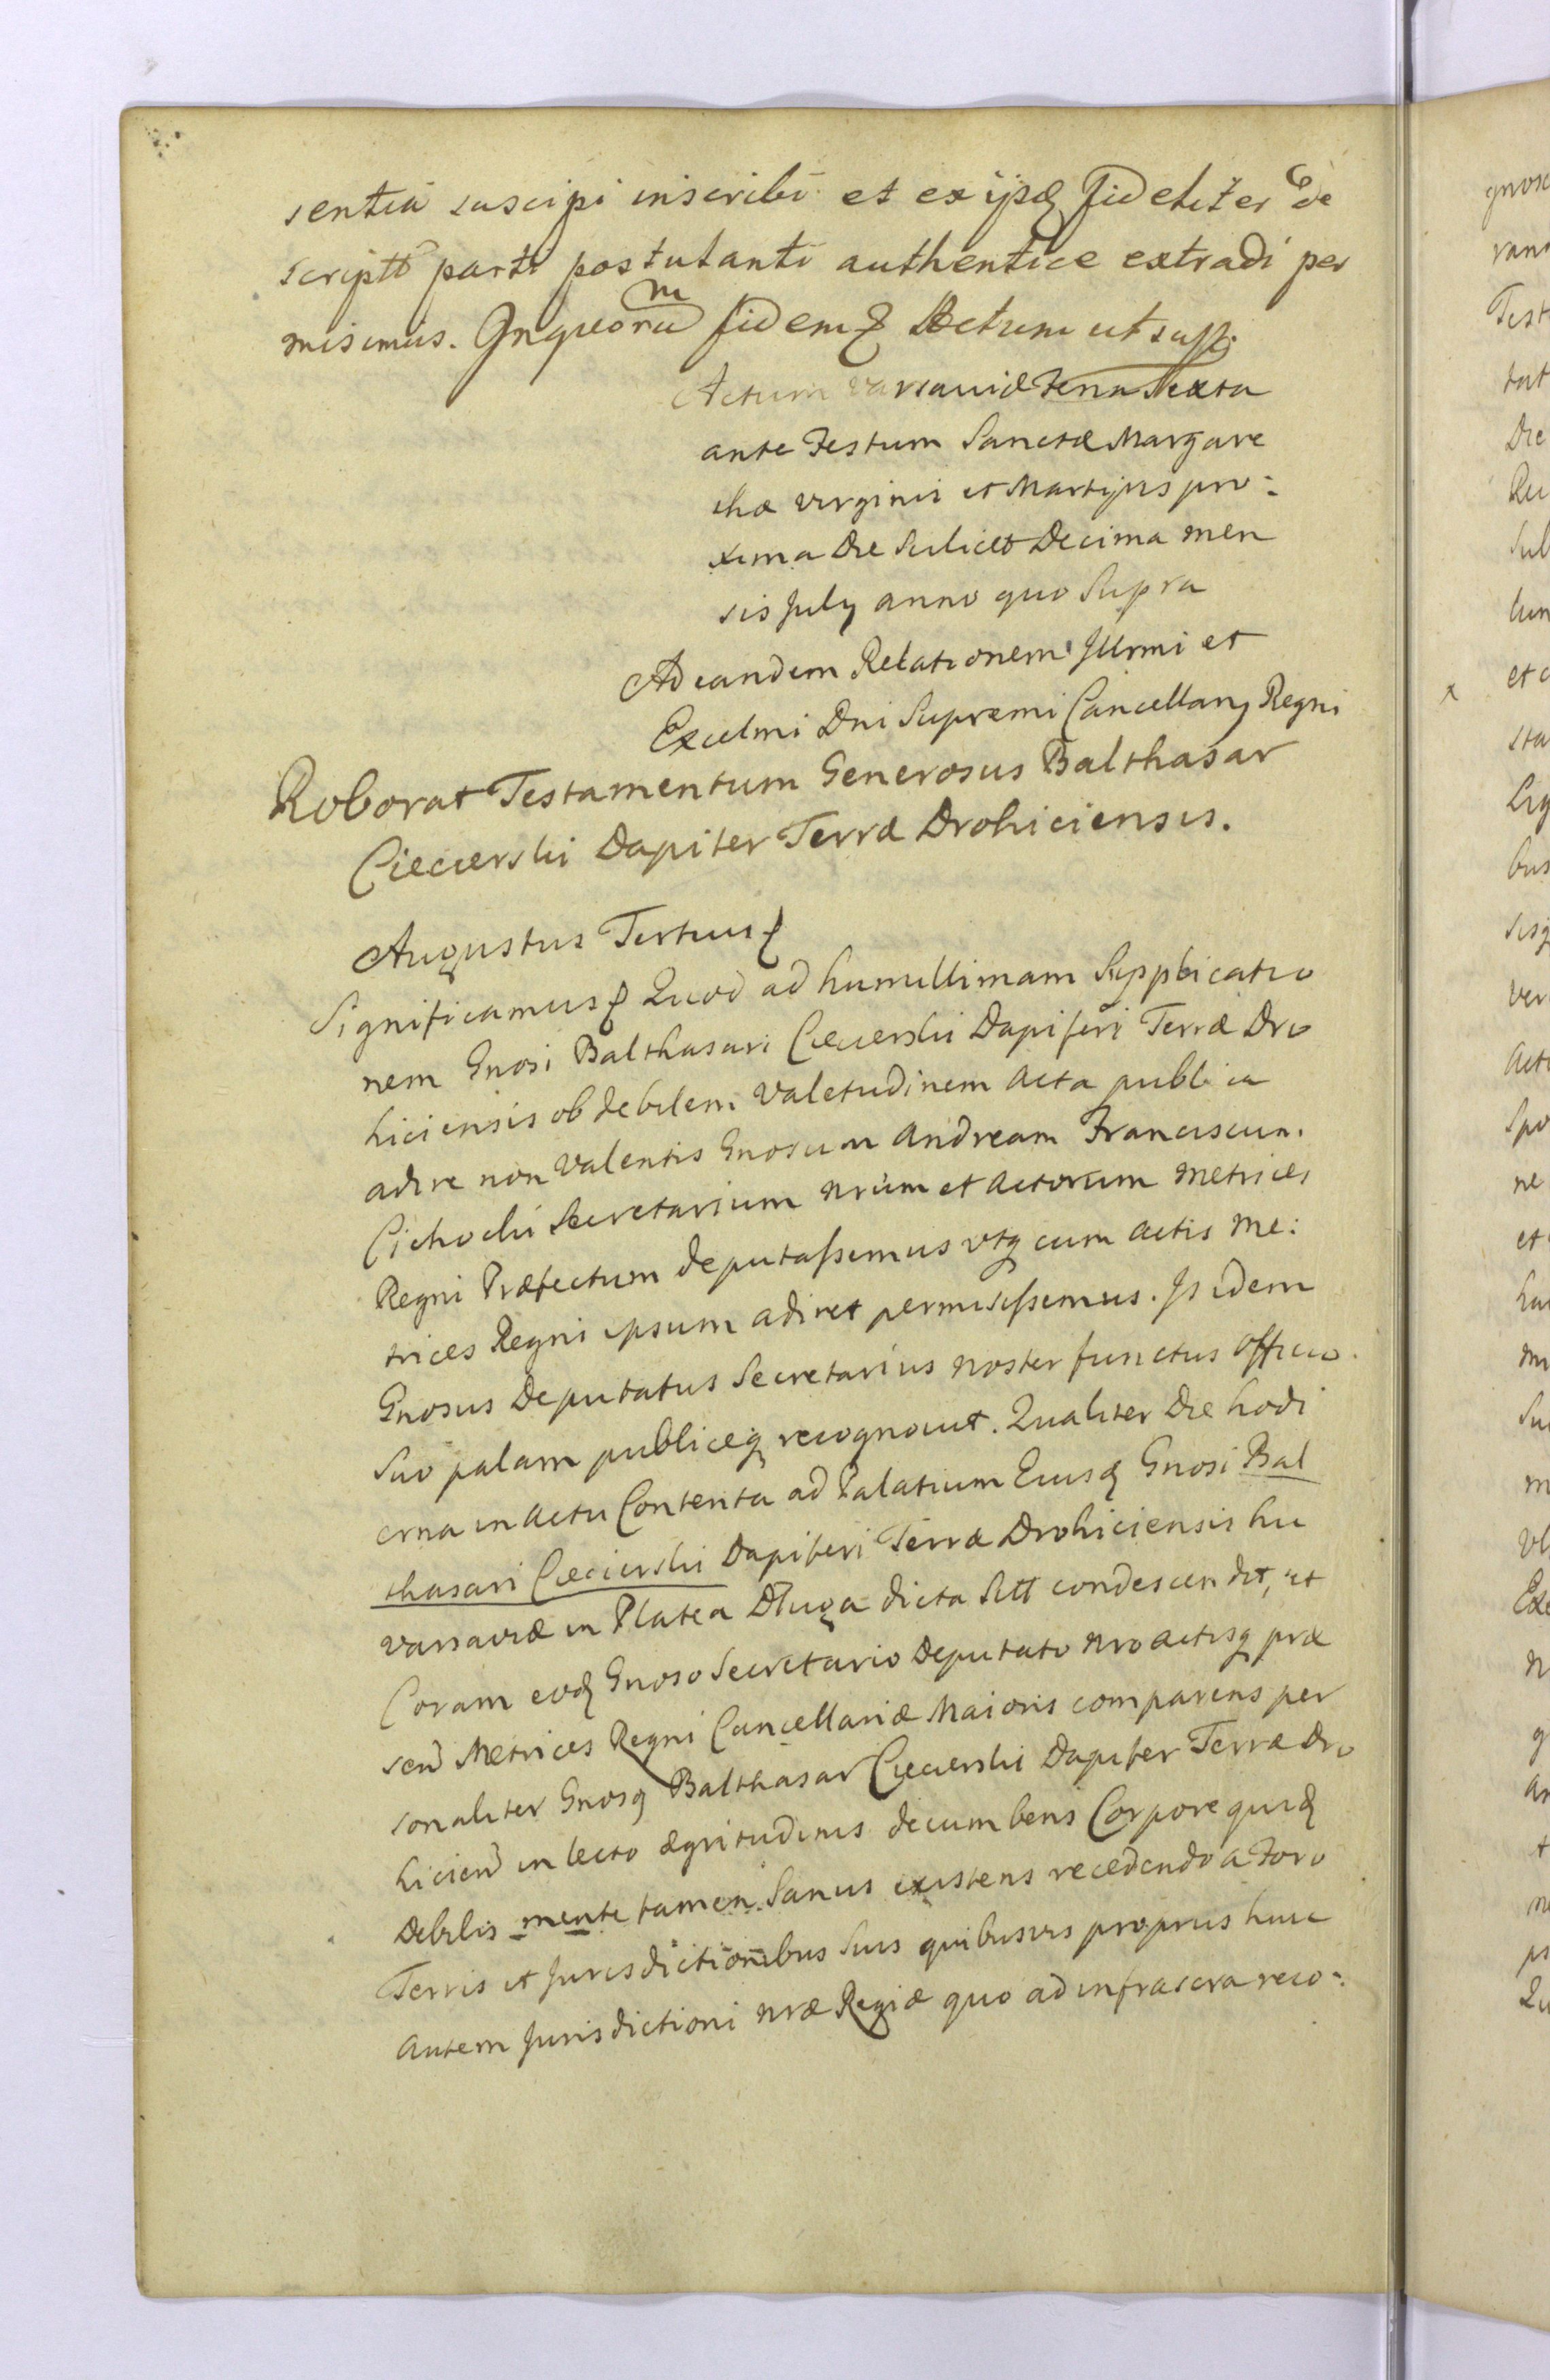 sentia suscipi inscribi et ex ijsq fideliter de
scriptt parti postulanti authentice extradi per
misimus. In quorum fidem Actum ut sup.
Actum Varsaviæ Feria Sexta
ante Festum Sanctæ Margare
thæ Virginis et Martyris pro:
xima Die Scilicet Decima men
sis July anno quo Supra
Ad eandem Relationem Illrmi et
Excelmi Dni Supremi Cancellarij Regni
Roborat Testamentum Generosus Balthasar
Ciecierski Dapifer Terræ Drohiciensis.
Augustus Tertius
Significamus Quod ad humillimam Supplicatio
nem Gnosi Balthasari Ciecierski Dapiferi Terræ Dro
hiciensis ob debilem Valetudinem Acta publica
adire non Valentis Gnosum Andream Franciscum
Cichocki Secretarium nrum et Actorum Metrices
Regni Præfectum deputassemus vtq cum Actis Me:
trices Regni ipsum adiret permisissemus. Is idem
Gnosus Deputatus Secretarius noster functus Officio
Suo palam publiceq recognovit. Qualiter Die hodi
erna in Actu Contenta ad Palatium Eiusd Gnosi Bal
thasari Ciecierski Dapiferi Terræ Drohiciensis hic
Varsaviæ in Platea Długa dicta Sitt condescendit, et
Coram eod Gnoso Secretario Deputato nro Actisq præ
sen Metrices Regni Cancellariæ Maioris comparens per
sonaliter Gnosq Balthasar Ciecierski Dapifer Terræ Dro
hicien in lecto ægritudinis decumbens Corpore quid
Debilis mente tamen Sanus existens recedendo a Foro
Terris et Jurisdictionibus Suis quibusvis proprijs huic
Autem Jurisdictioni nræ Regiæ quo ad infrascra reco:
x